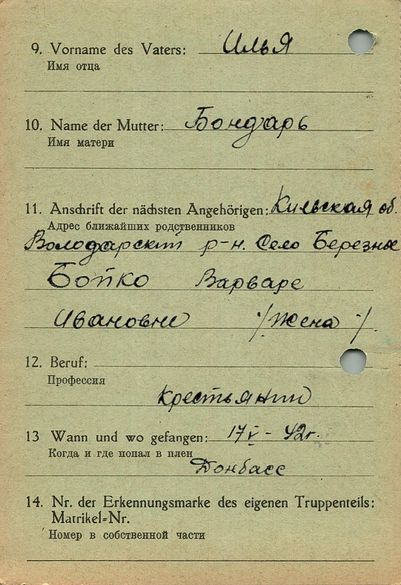 9. Vorname des Vaters: Илья
Имя отца
10. Name der Mutter: Бондарь
Имя матери
11. Anschrift der nächsten Angehörigen: Кильская об.
Адрес ближайших родственников
Володарский р-н. Село Березное
Бойко Варваре
Ивановне /Жена/.
12. Beruf:
Профессия
крестьянин
13 Wann und wo gefangen: 17 V - 42г.
Когда и где попал в плен
Донбасс
14. Nr. der Erkennungsmarke des eigenen Truppenteils:
Matrikel-Nr.
Номер в собственной части